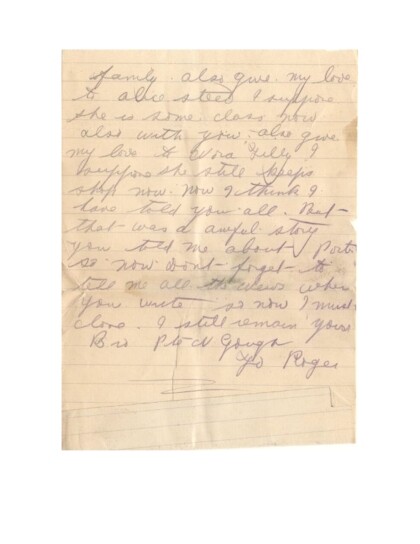 family. also give my love
to alice steel I suppose
she is some class now
also with you. also give
my love to Nora Kelly I
suppose she still keeps
shop now. now I think I
have told you all. But
that was a awful story
you told me about
so now dont forget to
tell me all the news when
you write so now I must
close. I still remain yours
Bro Pte N Gough